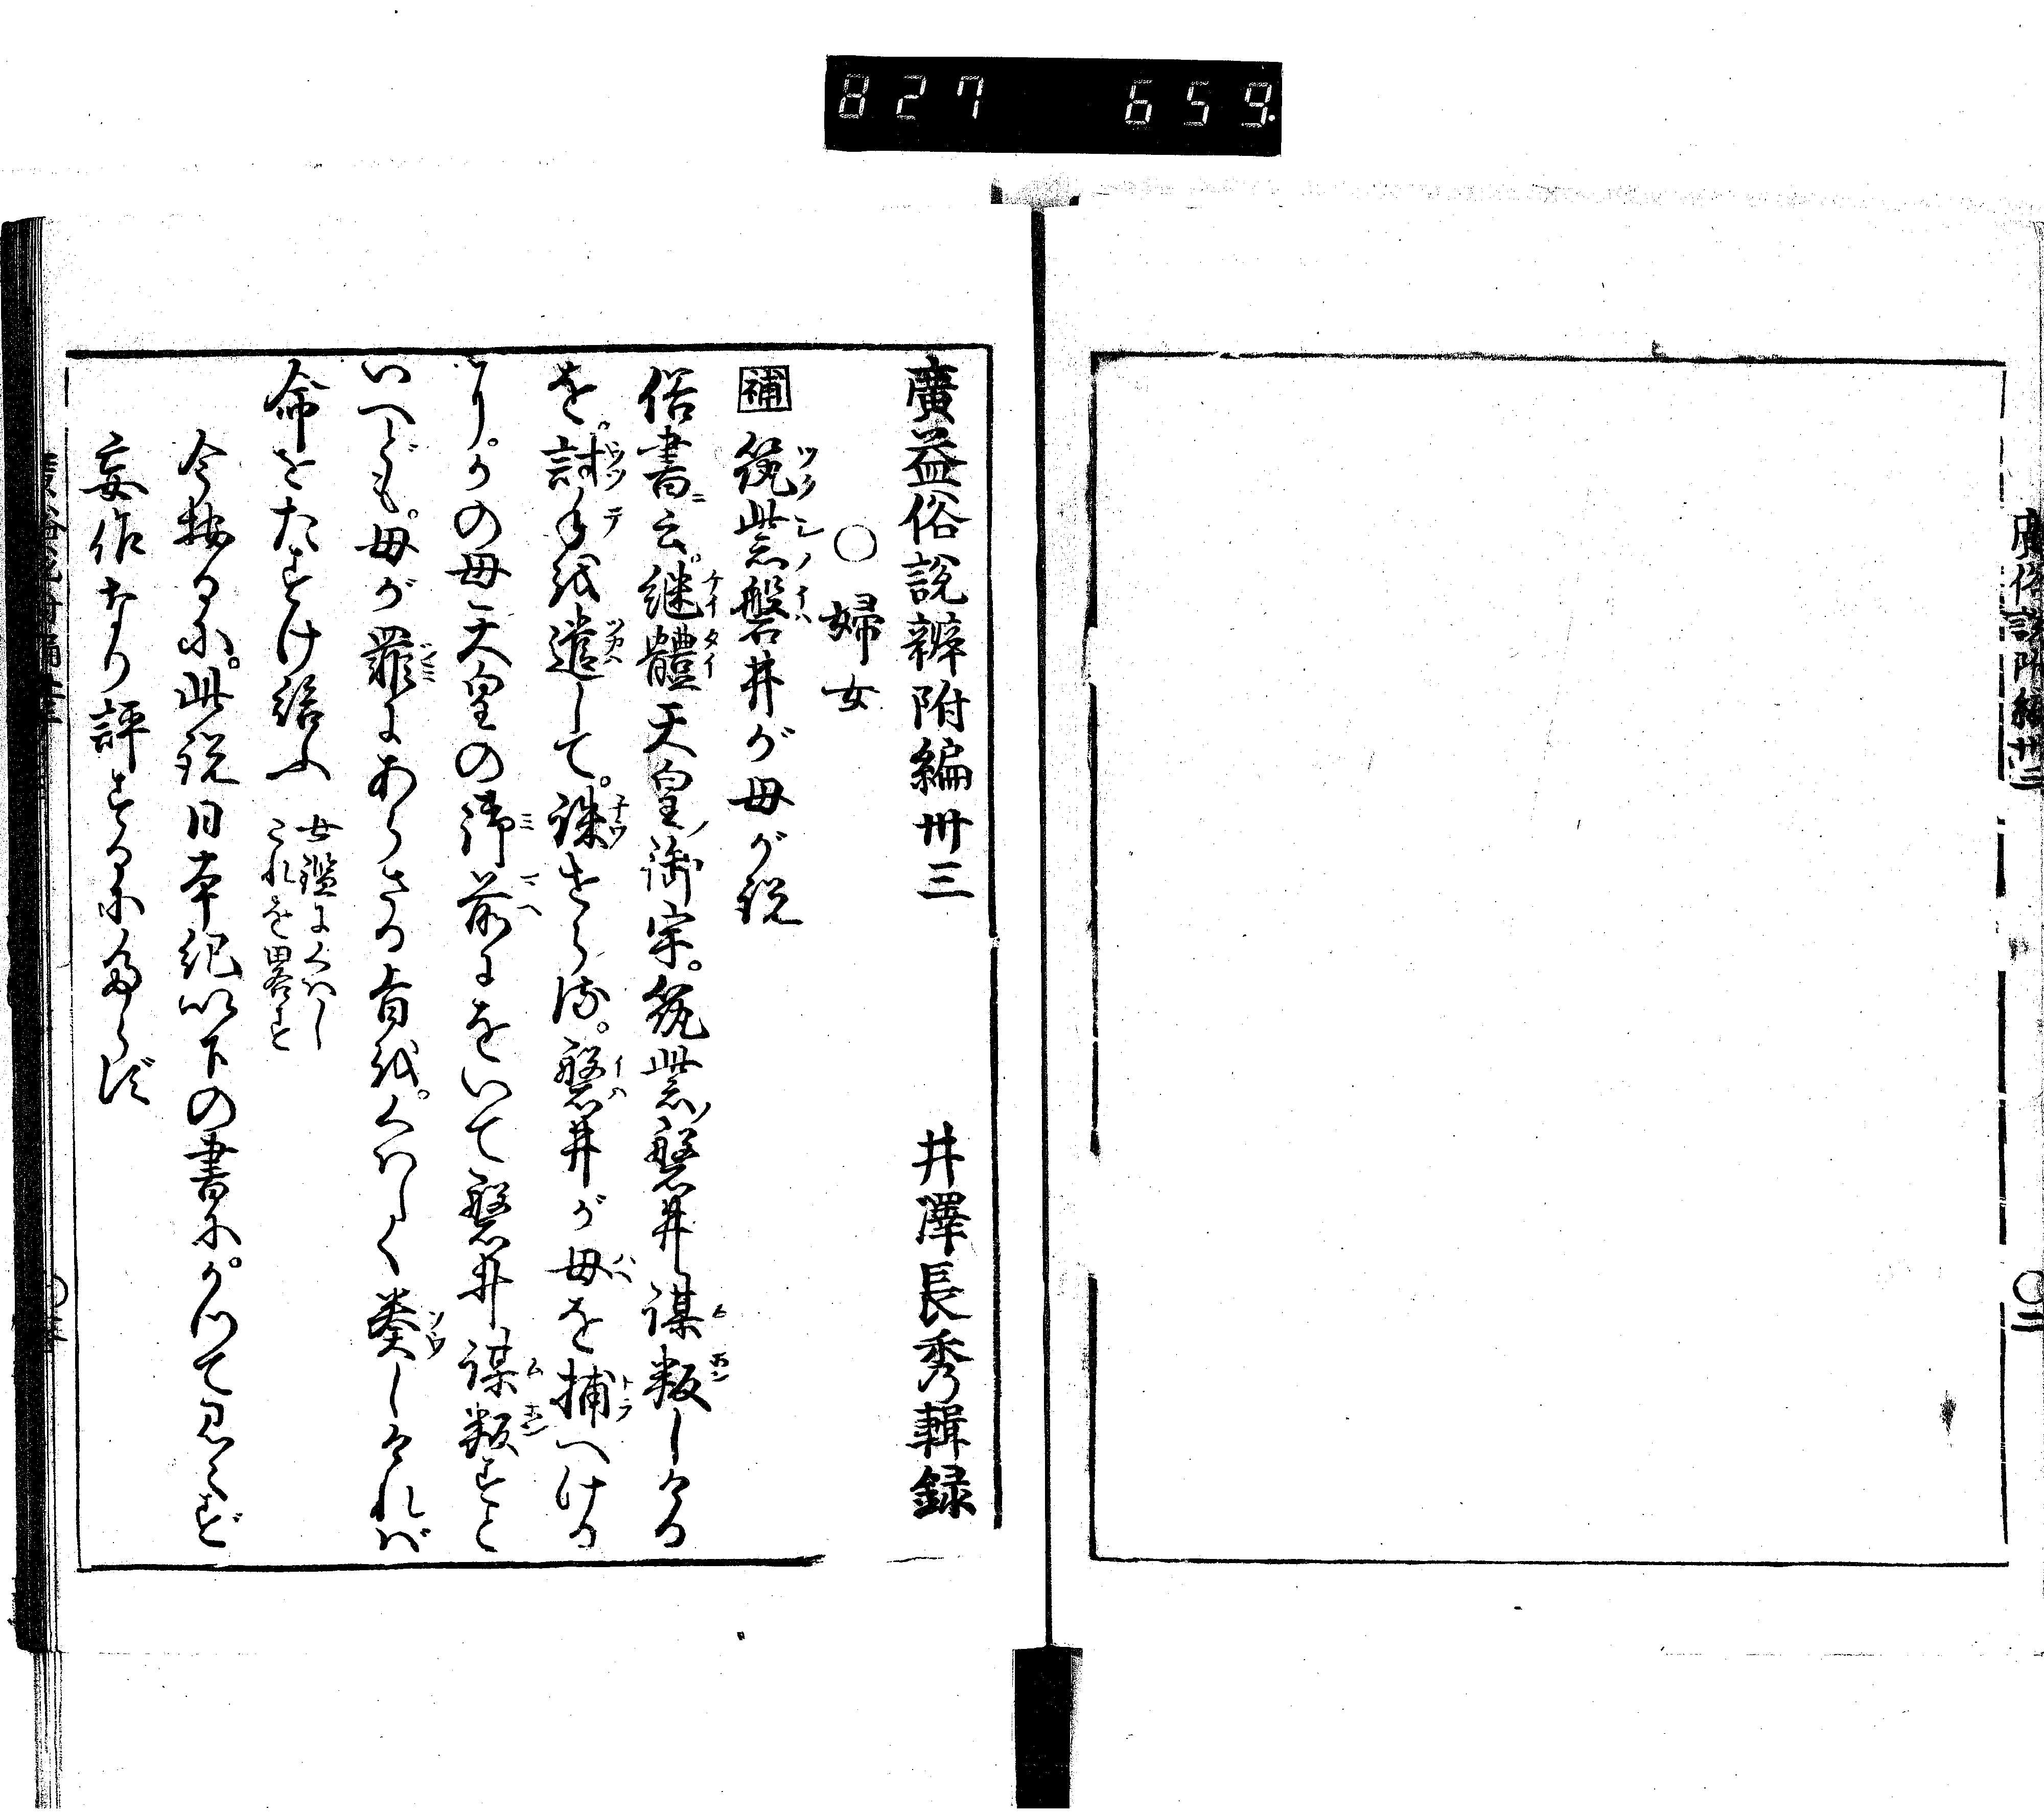 827 659
廣益俗說辯附編卅三 井澤長秀輯録
○婦女
補 筑紫磐井が母が説
俗書ニ云。継體天皇ノ御宇。筑紫ノ磐井謀叛しける
を。討手を遣して。誅せらる。磐井が母を捕へける
かの母天皇の御前にをいて磐井謀叛すと
いへども。母が罪にあらざる旨を。くはしく奏しければ
命をたすけ給ふ 女鑑にくはし
これを畧す
今按るに。此説日本紀以下の書に。かつて見えず
妄作なり評するにたらず